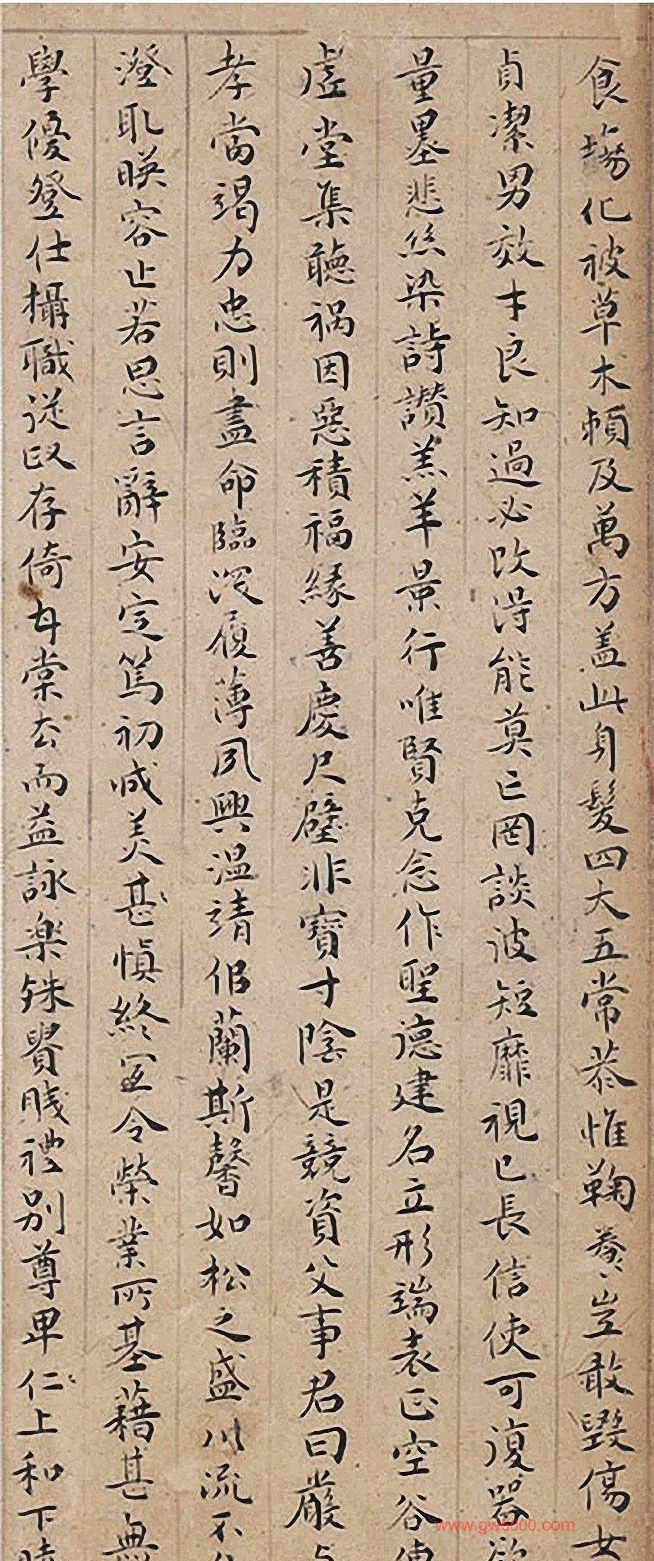 食場化被草木賴及萬方盖此身髮四大五常恭惟鞠養豈敢毀傷女
貞潔男效才良知過必改得能莫亡罔談彼短靡視已長信使可復器欲
量墨悲絲染詩讚羔羊景行唯賢克念作聖德建名立形端表正空谷傳
虛堂集聽禍因惡積福緣善慶尺璧非寶寸陰是競資父事君曰嚴与
孝當竭力忠則盡命臨深履薄夙興温清似蘭斯馨如松之盛川流不
澄取暎容止若思言辭安定篤初诚美甚慎終宜令榮業所基藉甚無
學優登仕攝職從政存倚甘棠去而益詠楽殊貴賤禮別尊卑仁上和下睦
www.gw5000.com